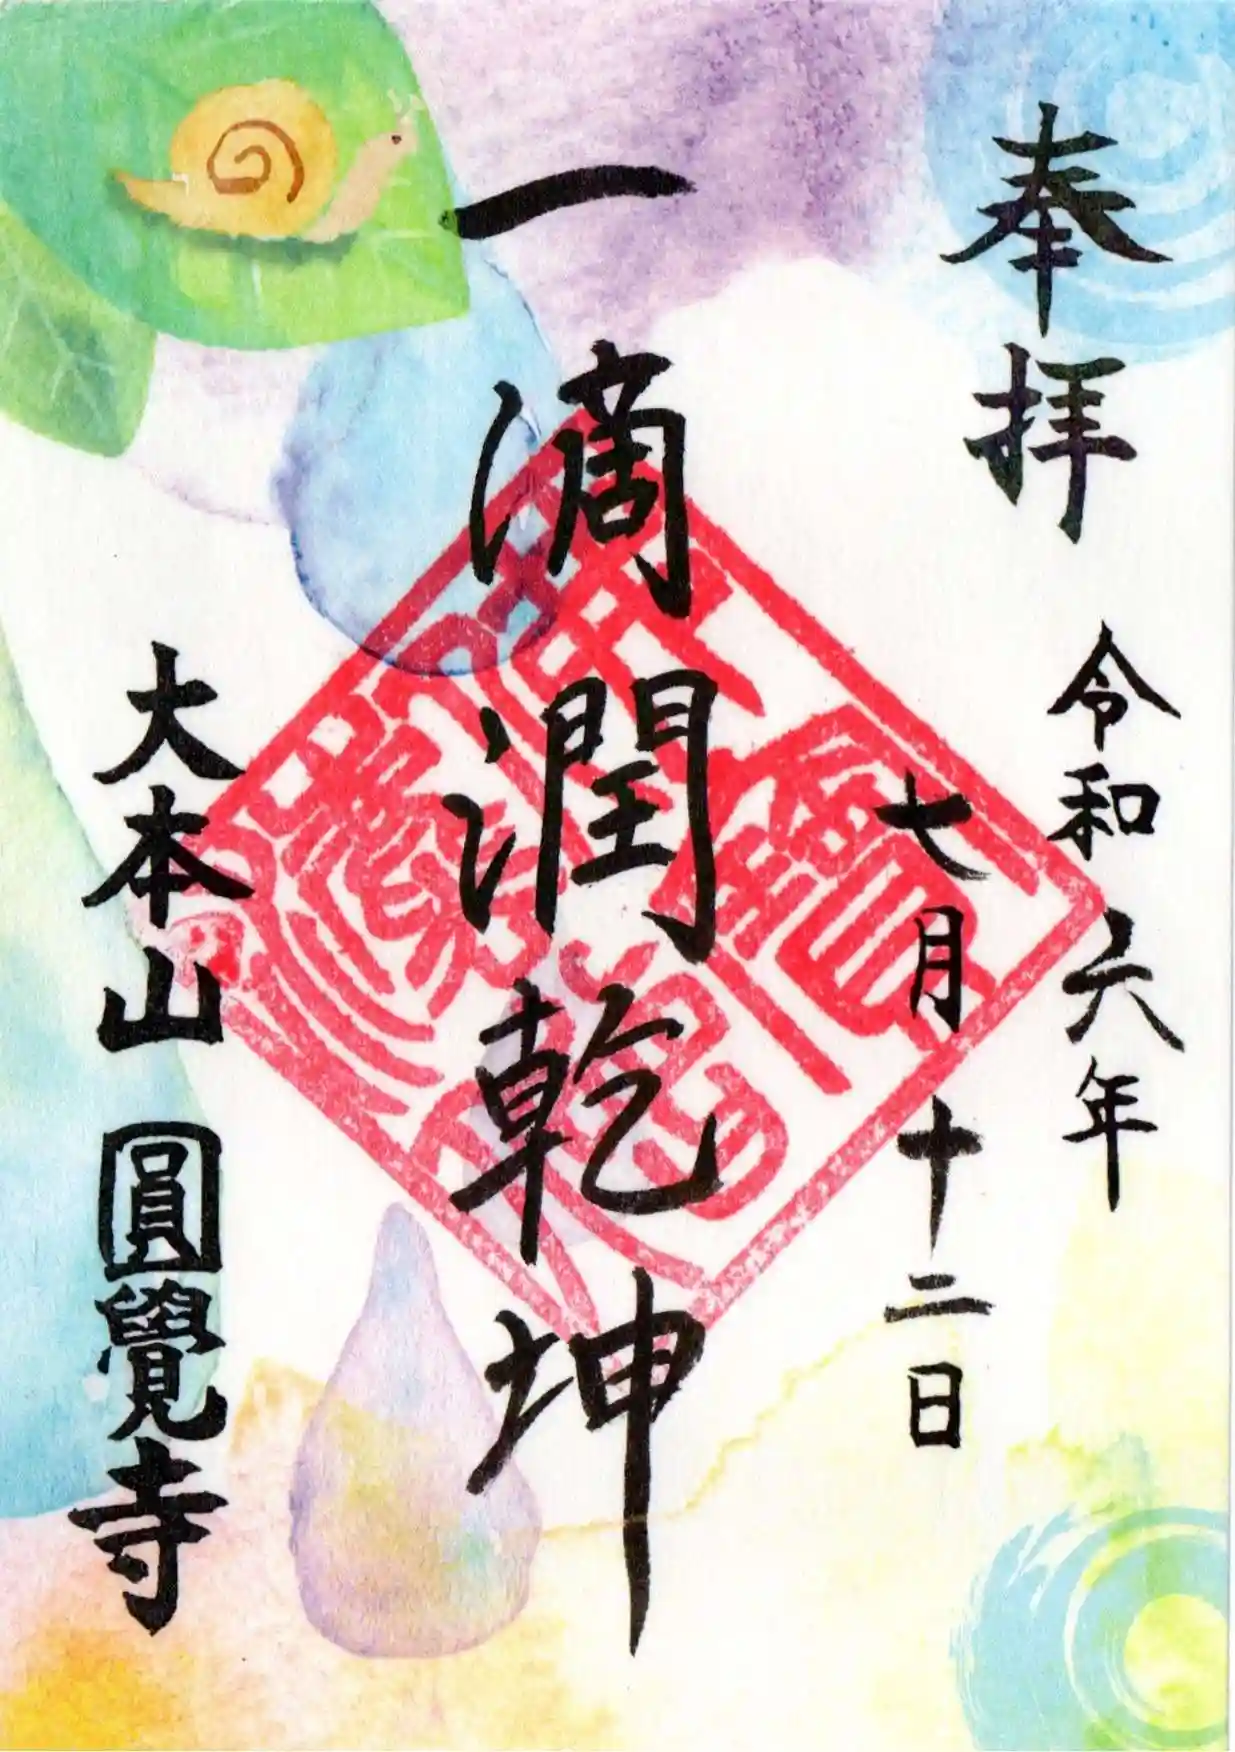 奉拝
令和六年
七月十二日
一滴潤乾坤
大本山圓覺寺